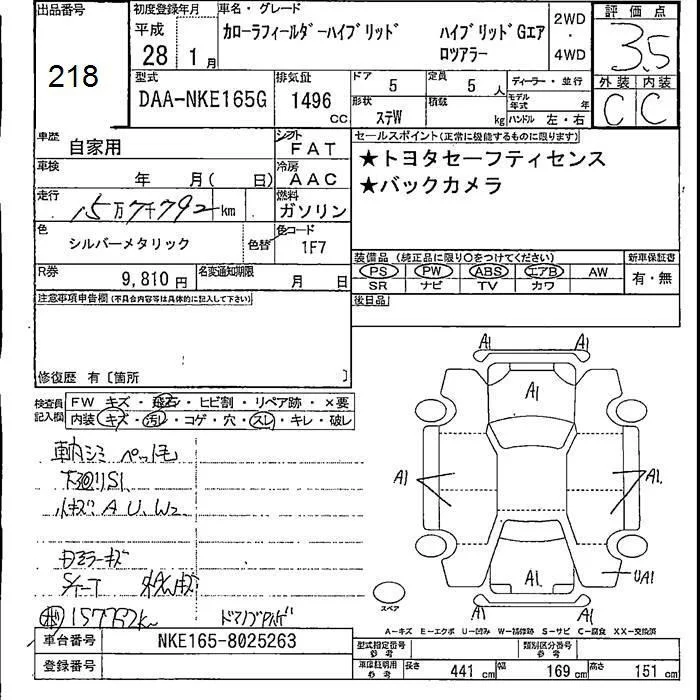 出品番号
218
初度登録年月
平成
28 1月
車名・グレード
カローラフィールダーハイブリッド ハイブリッドGエア
ロツアラー
2WD
・
4WD
評価点
3.5
外装 内装
C C
型式
DAA-NKE165G
排気量
1496 cc
ドア 5
定員 5人
ディーラー・並行
モデル年式 年
形状 ステW
積載 kg
ハンドル 左・右
車歴 自家用
シフト FAT
車検 年 月( 日)
冷房 AAC
走行 15万7千792km
燃料 ガソリン
色 シルバーメタリック
色替
色コード 1F7
R券 9,810円
名変通知期限 月 日
セールスポイント(正常に機能するものに限ります)
★トヨタセーフティセンス
★バックカメラ
装備品 (純正品に限り○をつけてください)
新車保証書
PS PW ABS エアB AW
有・無
SR ナビ TV カワ
後日品
注意事項申告欄(不具合内容等は具体的に記入して下さい)
修復歴 有〔箇所 〕
検査員記入欄
FW キズ・飛石・ヒビ割・リペア跡・×要
内装・キズ・汚レ・コゲ・穴・スレ・キレ・破レ
車内シミ ペット毛
下廻りS1
小キズ A U、W2
157792km
A1 A1
A1
A1 A1
A1
UA1
A1 A1
スペア
A-キズ E-エクボ U-凹み W-補修跡 S-サビ C-腐食 XX-交換済
車台番号 NKE165-8025263
登録番号
型式指定番号 参考
類別区分番号 参考
車庫証明用 参考
長さ 441cm 幅 169cm 高さ 151cm